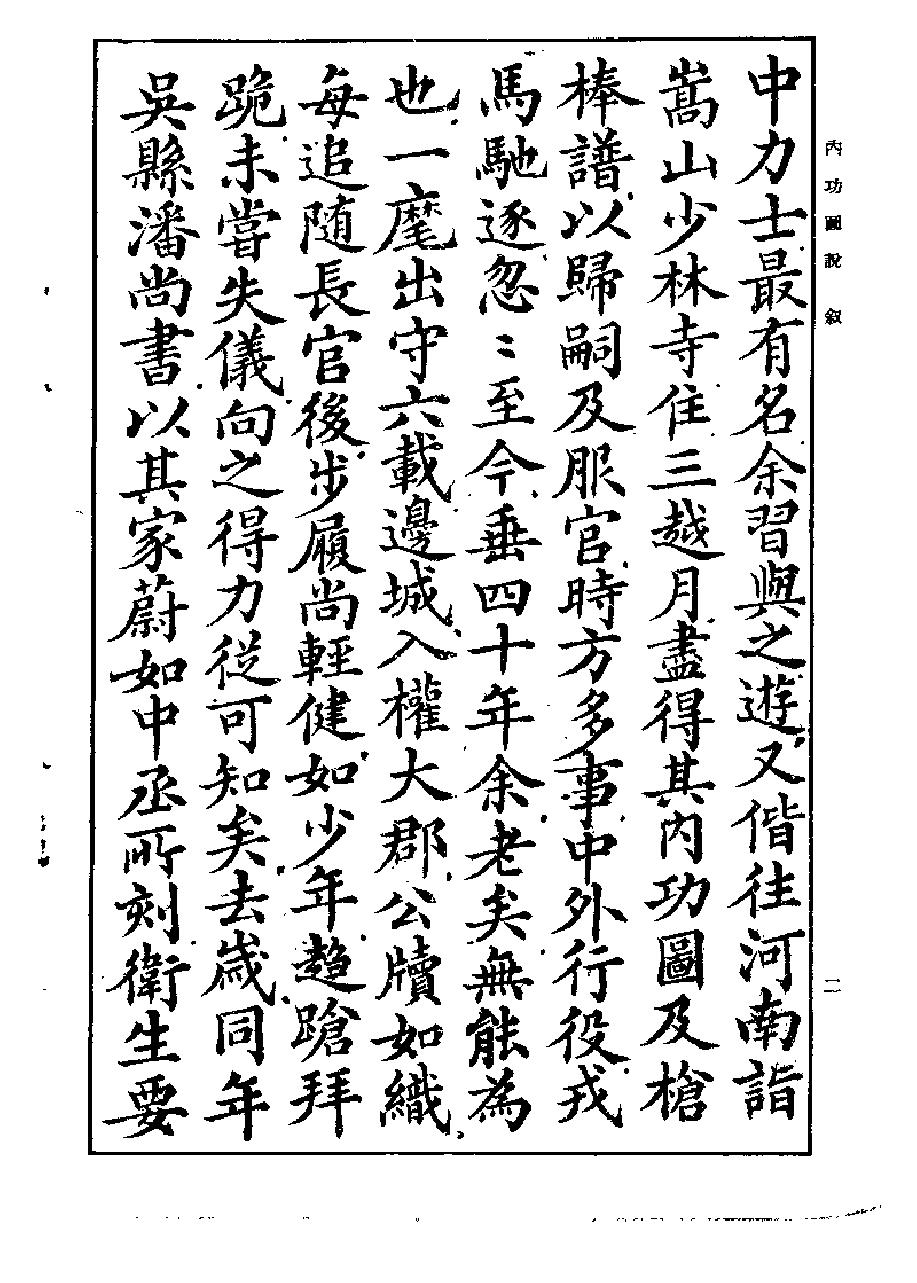 內功圖說 叙 二
中力士最有名余習與之遊又偕往河南詣
嵩山少林寺住三越月盡得其內功圖及槍
棒譜以歸嗣及服官時方多事中外行役戎
馬馳逐忽〻至今垂四十年余老矣無能為
也一麾出守六載邊城入權大郡公牘如織
每追隨長官後步履尚輕健如少年趨蹌拜
跪未嘗失儀向之得力從可知矣去歲同年
吳縣潘尚書以其家蔚如中丞所刻衛生要